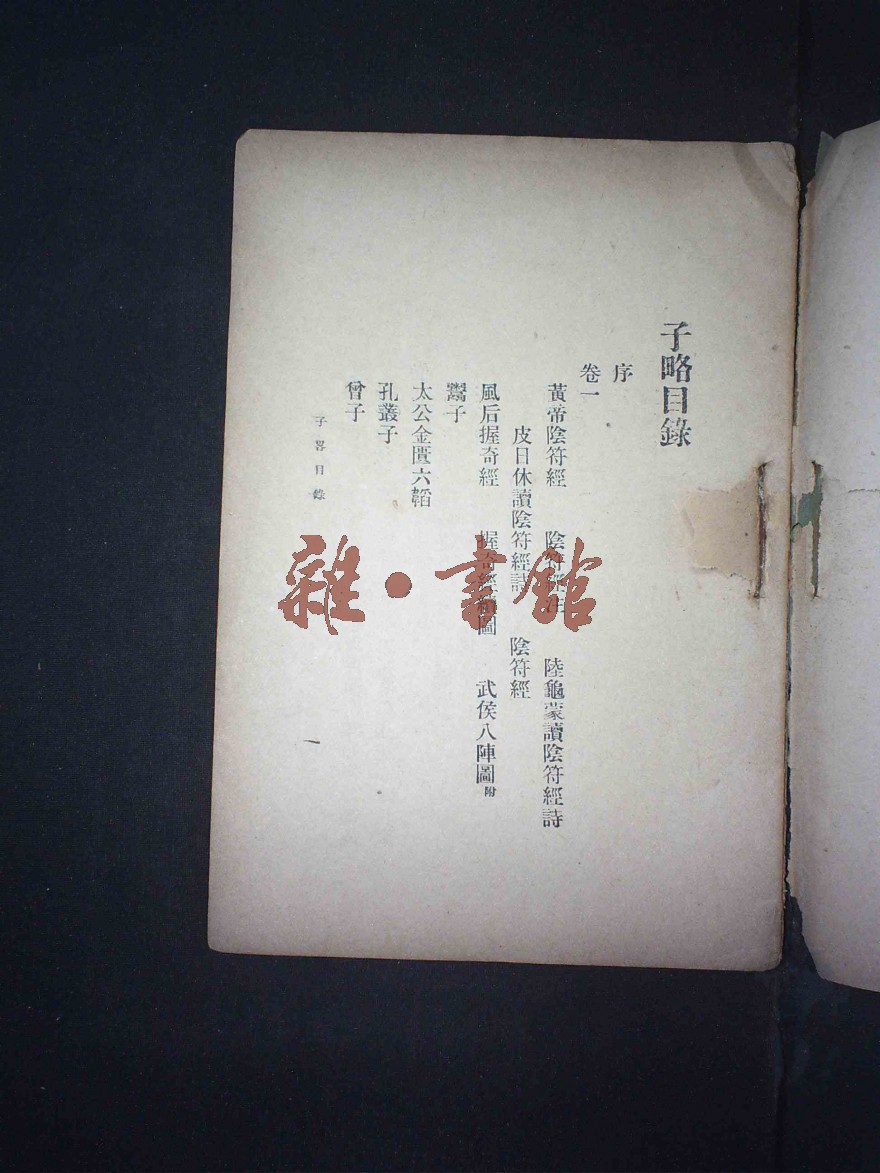 子略目錄
序
卷一
黃帝陰符經 陰符經注 陸龜蒙讀陰符經詩
皮日休讀陰符經詩 陰符經
風后握奇經 握奇經續圖 武侯八陣圖附
鬻子
太公金匱六韜
孔叢子
曾子
子略目錄
一
雜·書館